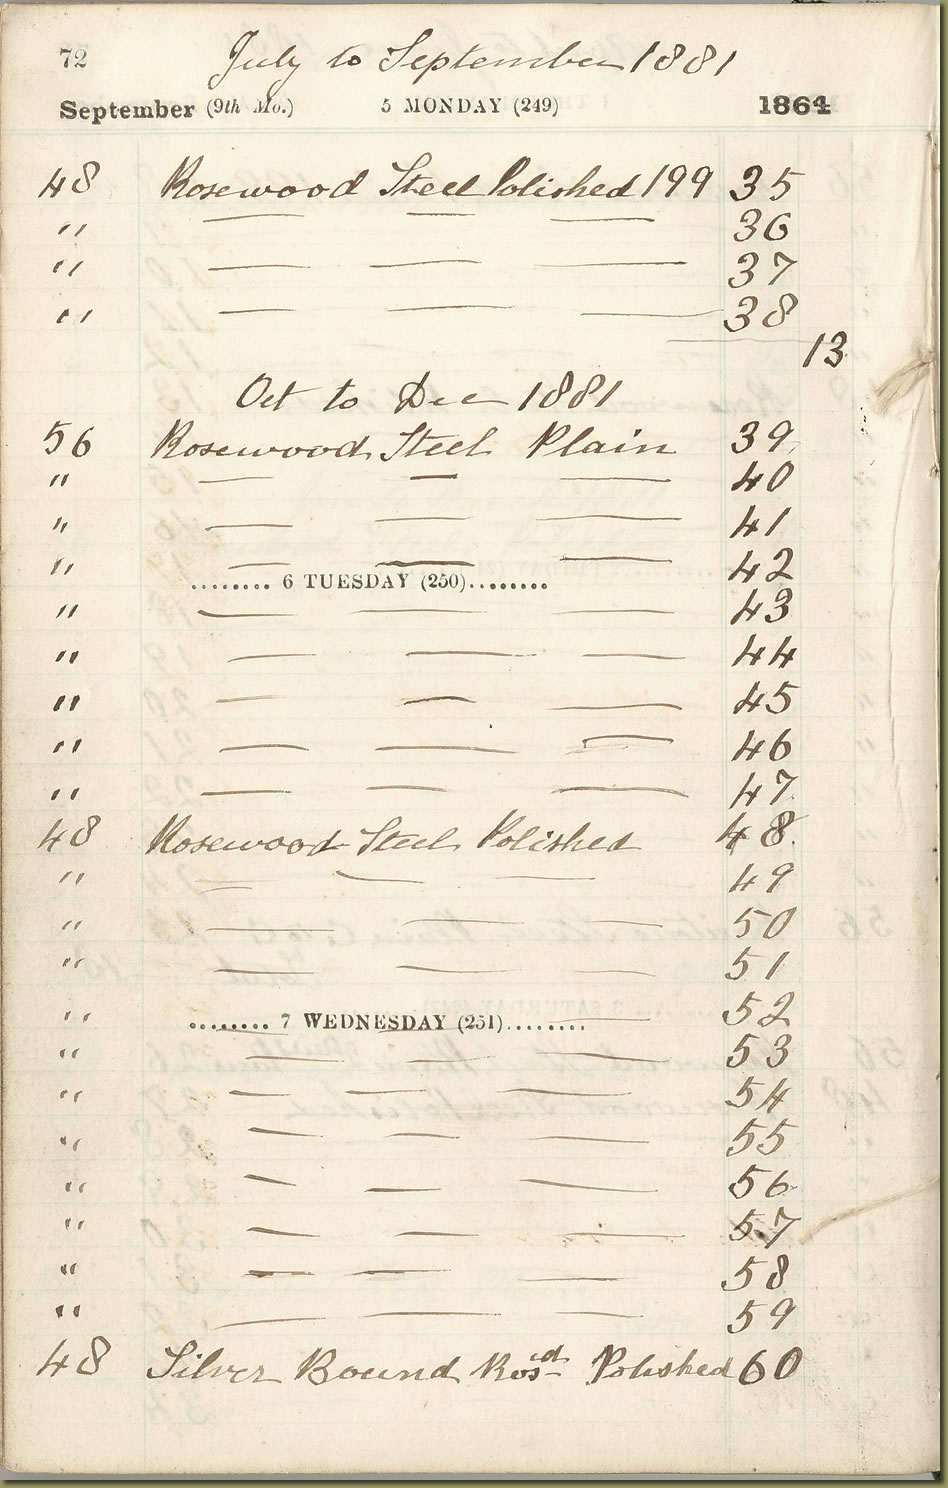 72 July to September 1881
September (9th Mo.) 5 MONDAY (249) 1864
48 Rosewood Steel Polished 199 35
" — — — 36
" — — — 37
" — — — 38
13
Oct to Dec 1881
56 Rosewood Steel Plain 39
" — — — 40
" — — — 41
" — — — 42
........ 6 TUESDAY (250)........
" — — — 43
" — — — 44
" — — — 45
" — — — 46
" — — — 47
48 Rosewood Steel Polished 48
" — — — 49
" — — — 50
" — — — 51
" — — — 52
........ 7 WEDNESDAY (251)........
" — — — 53
" — — — 54
" — — — 55
" — — — 56
" — — — 57
" — — — 58
" — — — 59
48 Silver Bound Rosd Polished 60